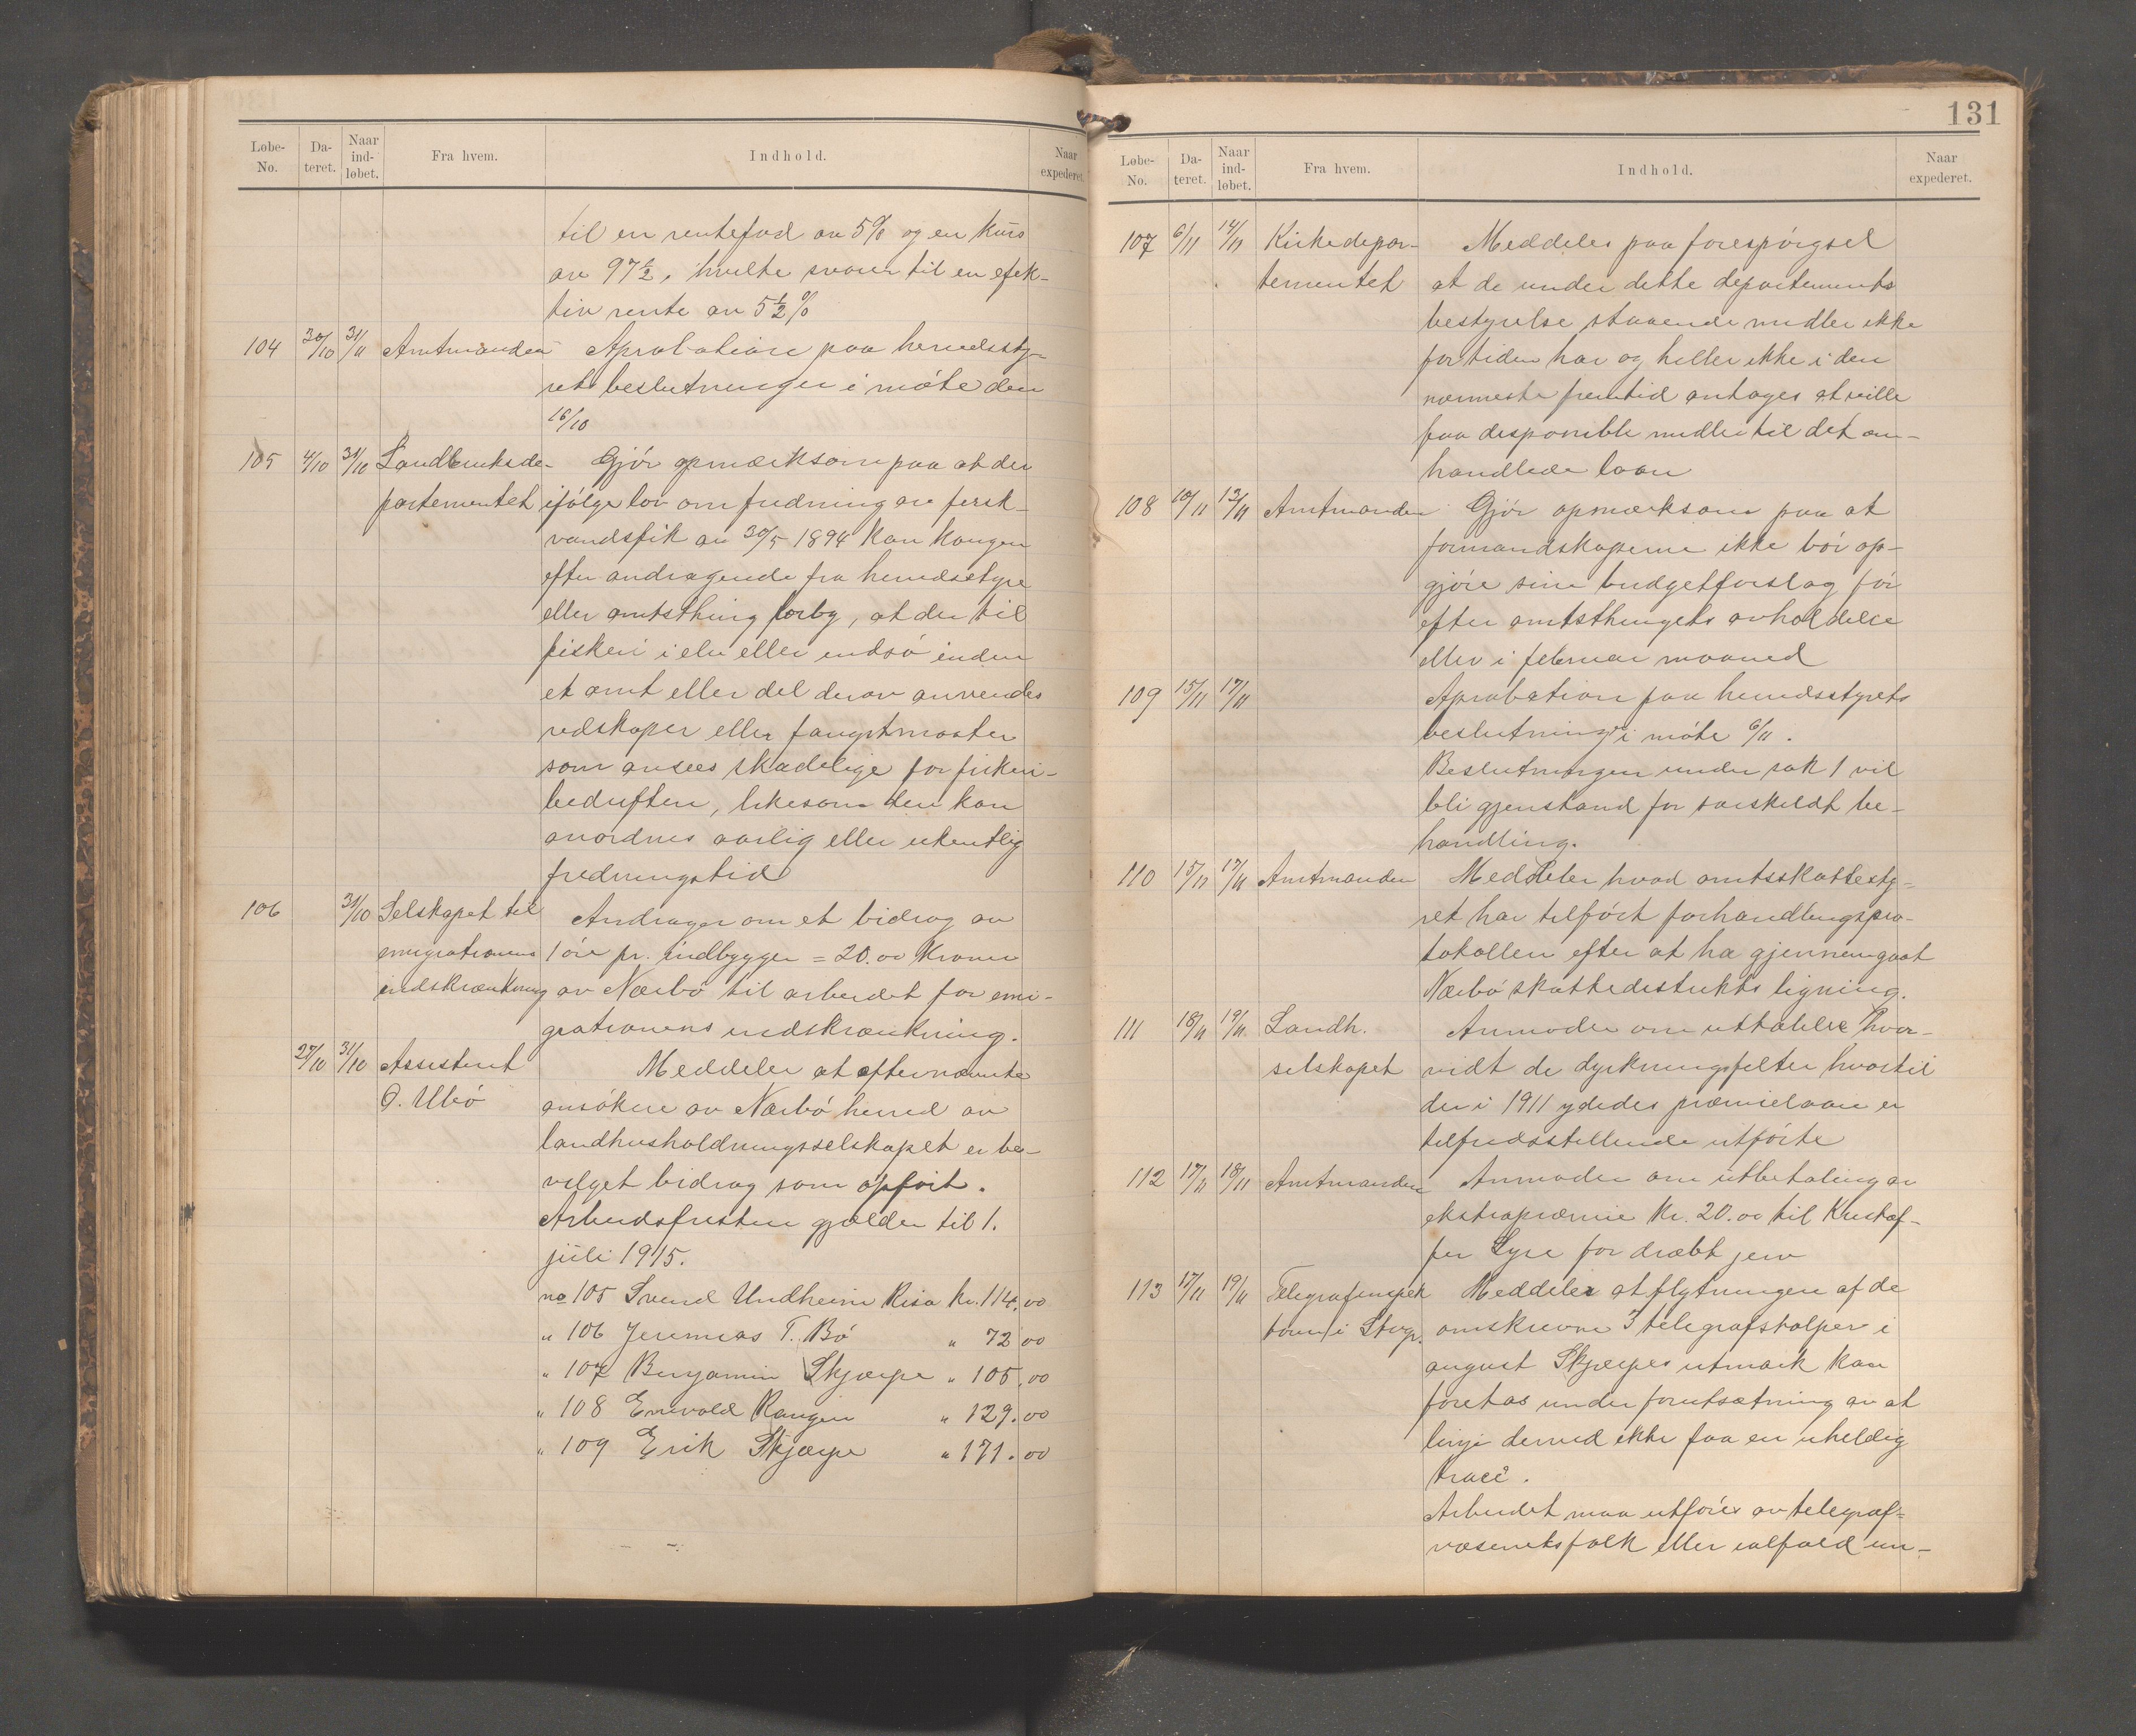 Løbe-No. Da-teret. Naar ind-løbet. Fra hvem. Indhold. Naar expederet.
til en rentefod av 5% og en kurs
av 97½, hvilke svarer til en efek-
tiv rente av 5½%
104 30/10 31/11 Amtmanden Aprobation paa herredssty-
rets beslutninger i møte den
16/10
105 4/10 31/10 Landbruksde- Gjør opmærksom paa at der
partementet ifølge lov om fredning av fersk-
vandsfisk av 30/5 1894 kan kongen
efter andragende fra herredsstyre
eller amtsthing forby, at der til
fiskeri i elv eller indsø inden
et amt eller del derav anvendes
redskaper eller fangstmaater
som ansees skadelige for fiskeri-
bedriften, likesom der kan
anordnes aarlig eller ukentlig
fredningstid
106 31/10 Selskapet til Andrager om et bidrag av
emigrationens 1 øre pr. indbygger = 20.00 Kroner
indskrænkning av Nærbø til arbeidet for emi-
grationens indskrænkning.
27/10 31/10 Assistent Meddeler at efternævnte
O. Ubø ansøkere av Nærbø herred av
landhusholdningsselskapet er be-
vilget bidrag som opført.
Arbeidsfristen gjælder til 1.
juli 1915.
no 105 Svend Undheim Risa kr. 114.00
" 106 Jeremias T. Bø " 72 00
" 107 Benjamin Skjærpe " 105.00
" 108 Enevold Raugen " 129.00
" 109 Erik Skjærpe " 171.00
131
Løbe-No. Da-teret. Naar ind-løbet. Fra hvem. Indhold. Naar expederet.
107 6/11 14/11 Kirkedepar- Meddeles paa forespørgsel
tementet at de under dette departements
bestyrelse staaende midler ikke
for tiden har og heller ikke i den
nærmeste fremtid antages at ville
faa disponible midler til det om-
handlede laan
108 10/11 12/11 Amtmanden Gjør opmærksom paa at
formandskaperne ikke bør op-
gjøre sine budgetforslag før
efter amtsthingets avholdelse
eller i februar maaned
109 15/11 17/11 Aprobation paa herredsstyrets
beslutninger i møte 6/11.
Beslutningen under sak 1 vil
bli gjenstand for særskildt be-
handling.
110 15/11 17/11 Amtmanden Meddeler hvad amtsskattesty-
ret har tilført forhandlingspro-
tokollen efter at ha gjennemgaat
Nærbø skattedistrikts ligning.
111 18/11 19/11 Landh. Anmoder om uttalelse hvor-
selskapet vidt de dyrkningsfelter hvortil
der i 1911 ydedes præmielaan er
tilfredsstillende utførte
112 17/11 18/11 Amtmanden Anmoder om utbetaling av
ekstrapræmie kr. 20.00 til Kristof-
fer Lyse for dræbt jerv
113 17/11 19/11 Telegrafinspek Meddeler at flytningen af de
tøren i Stvgr. omskrevne 3 telegrafstolper i
august Skjærpes utmark kan
foretas under forutsætning av at
linje derved ikke faa en uheldig
tracé.
Arbeidet maa utføres av telegraf-
væsenets folk eller ialfald un-